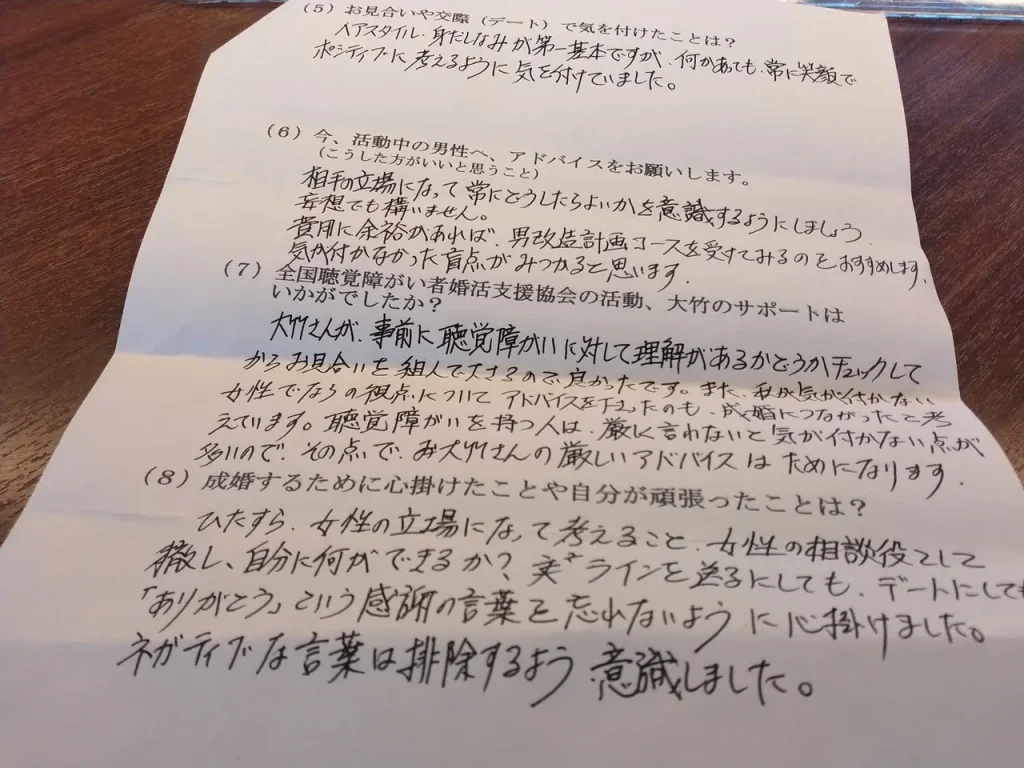 (5) お見合いや交際（デート）で気を付けたことは？
ヘアスタイル、身だしなみが第一基本ですが、何かあても、常に笑顔で
ポジティブに考えるように気を付けていました。
(6) 今、活動中の男性へ、アドバイスをお願いします。
(こうした方がいいと思うこと)
相手の立場になって常にどうしたらよいかを意識するようにしましょう、
妄想でも構いません。
費用に余裕があれば、男改造計画コースを受けてみるのをおすすめします、
気が付かなかった盲点がみつかると思います。
(7) 全国聴覚障がい者婚活支援協会の活動、大竹のサポートは
いかがでしたか？
大竹さんが、事前に聴覚障がいに対して理解があるかどうかチェックして
からお見合いを組んで下さるので良かったです。また、私が気が付かない
女性ならの視点について アドバイスを下さったのも、成婚につながったと考
えています。聴覚障がいを持つ人は、厳に言わないと気が付かない点が
多いので、その点で、大竹さんの厳しいアドバイスはためになります。
(8) 成婚するために心掛けたことや自分が頑張ったことは？
ひたすら、女性の立場になって考えること、女性の相談役として
徹し、自分に何ができるか？ ラインを送るにしても、デートにしても
「ありがとう」という感謝の言葉を忘れないように心掛けました。
ネガティブな言葉は排除するよう意識しました。